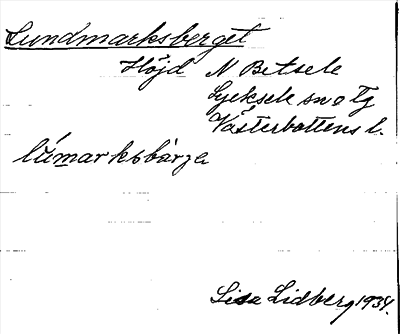 Lundmarksberget
Höjd N Betsele
Lycksele sn o Tg
Västerbottens l.
lúmarksbärje
Lisa Lidberg 1934.